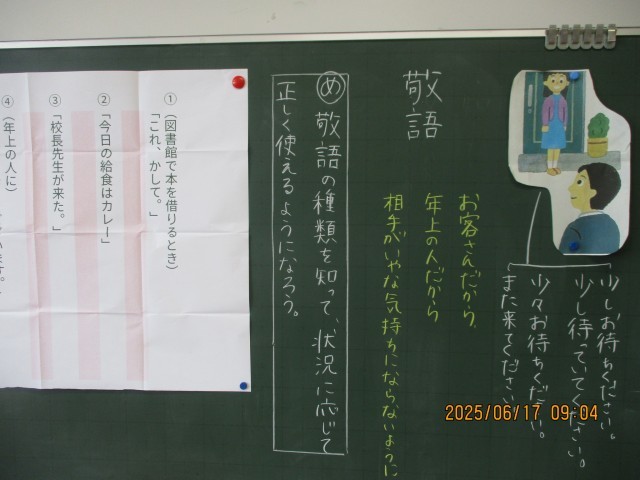 少しお待ちください。
少し待っていてください。
少々お待ちください。
また来てください
敬語
お客さんだから
年上の人だから
相手がいやな気持ちにならないように
め 敬語の種類を知って、状況に応じて
正しく使えるようになろう。
① （図書館で本を借りるとき）
「これ、かして。」
② 「今日の給食はカレー」
③ 「校長先生が来た。」
④ （年上の人に）
2025/06/17 09:04